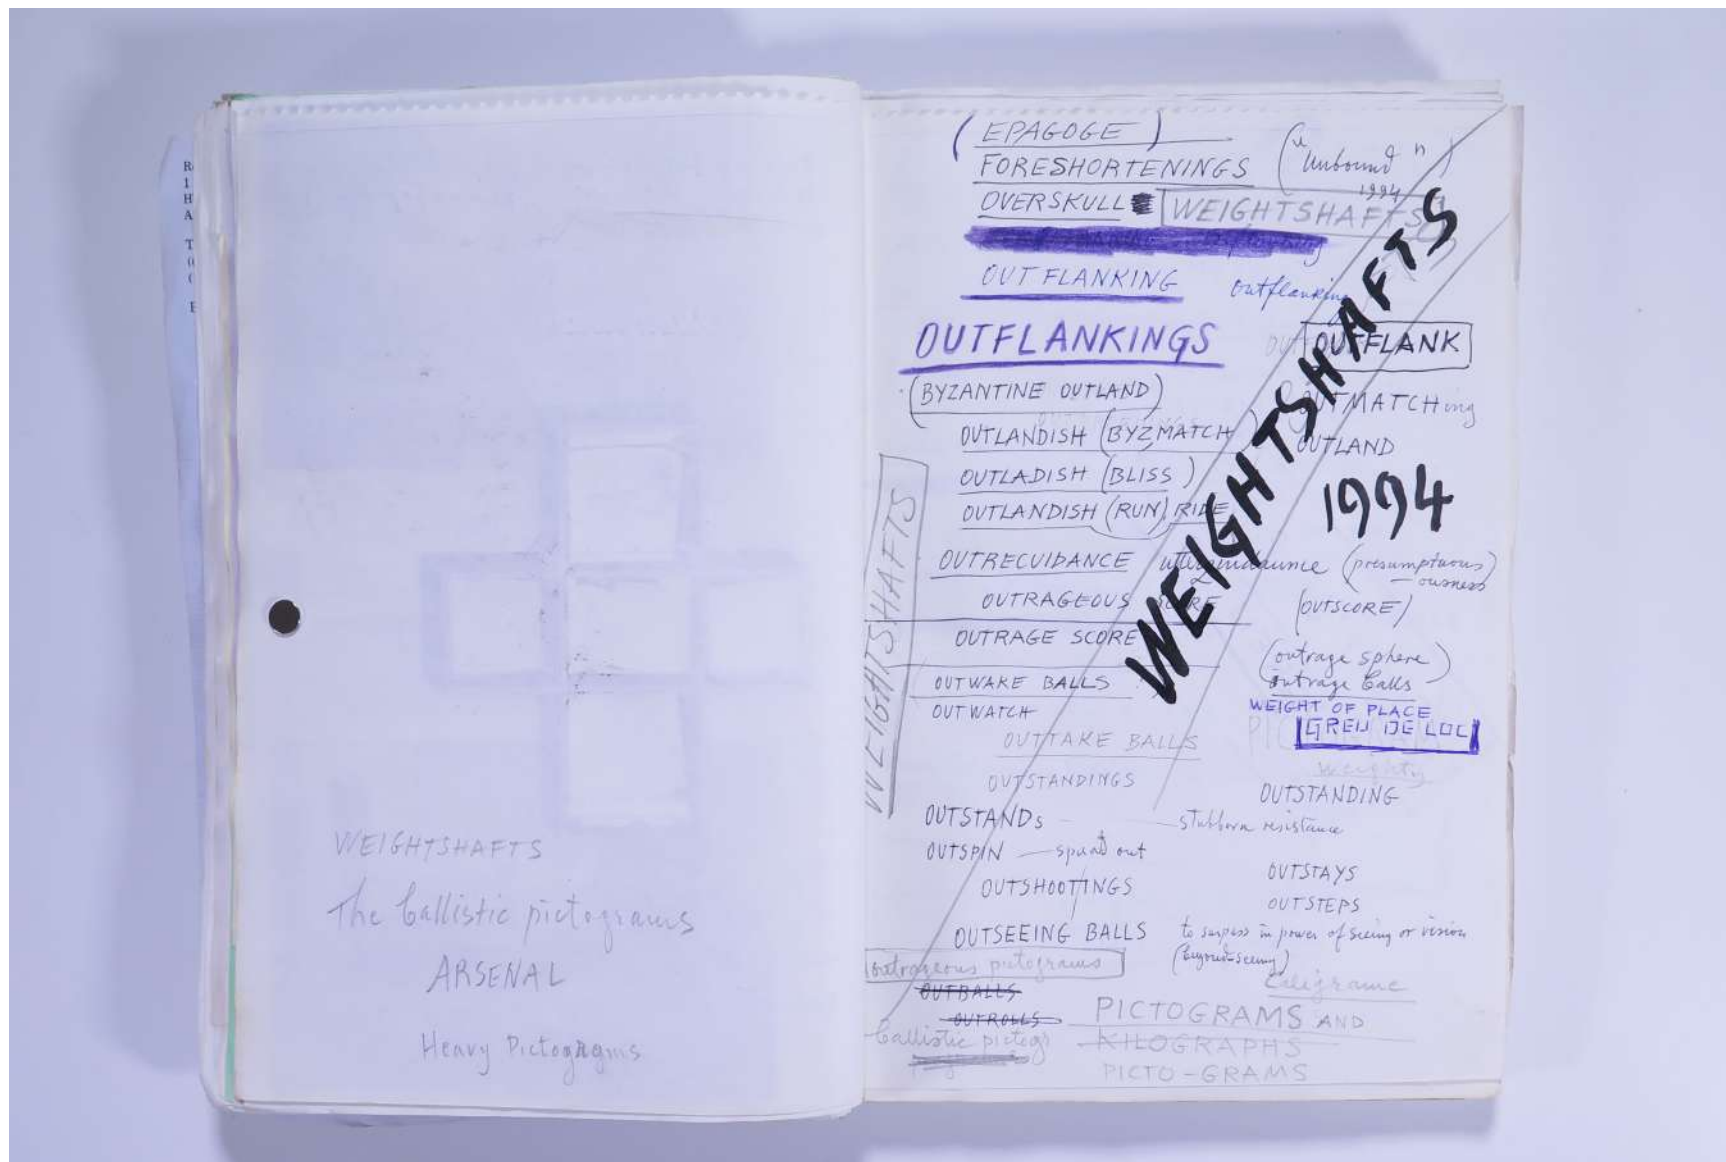 R
1
H
A
T
(
E
WEIGHTSHAFTS
The ballistic pictograms
ARSENAL
Heavy Pictograms
(EPAGOGE)
FORESHORTENINGS
("Unbound"
1994)
OVERSKULL
WEIGHTSHAFTS
OUTFLANKING
outflanking
OUTFLANKINGS
OUTFLANK
(BYZANTINE OUTLAND)
OUTMATCHing
OUTLANDISH (BYZMATCH
OUTLAND
OUTLADISH (BLISS)
OUTLANDISH (RUN) RIDE
WEIGHTSHAFTS
1994
WEIGHTSHAFTS
OUTRECUIDANCE
(presumptuous)
—ousness
OUTRAGEOUS SCORE
(OUTSCORE)
OUTRAGE SCORE
(outrage sphere)
outrage balls
OUTWAKE BALLS
WEIGHT OF PLACE
OUTWATCH
GREU DE LOC
OUTTAKE BALLS
weighty
OUTSTANDINGS
OUTSTANDING
OUTSTANDs
—stubborn resistance
OUTSPIN — out
OUTSTAYS
OUTSHOOTINGS
OUTSTEPS
OUTSEEING BALLS
to surpass in power of seeing or vision
(beyond-seeing)
outrageous pictograms
Caligrame
OUTBALLS
OUTROLLS
PICTOGRAMS AND
ballistic pictogs
KILOGRAPHS
PICTO-GRAMS